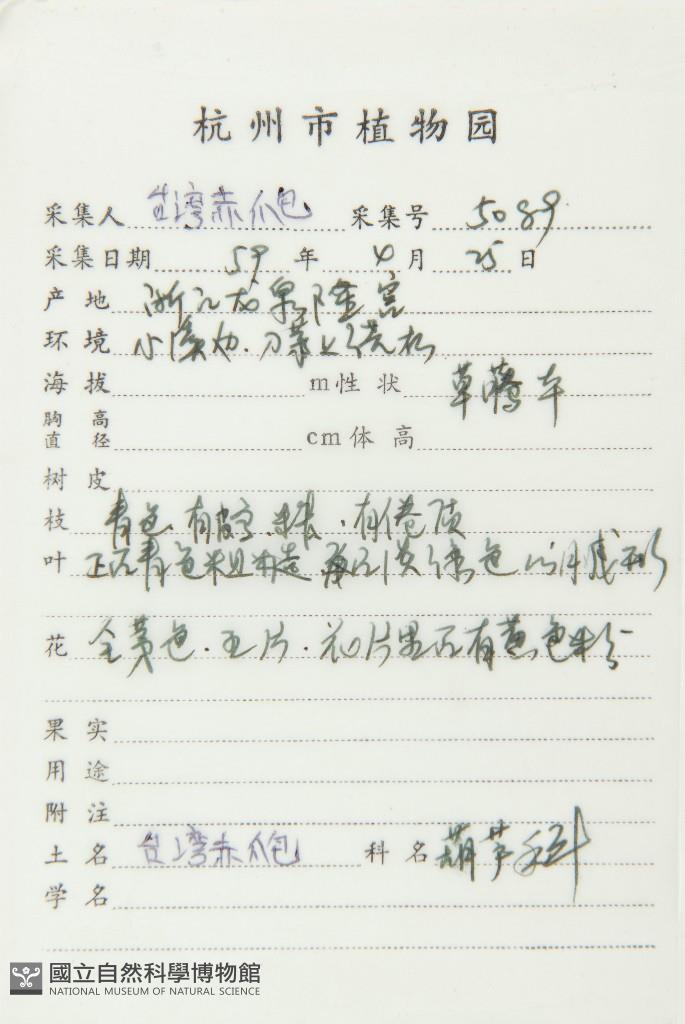 杭州市植物园
采集人 台湾赤爬 采集号 5089
采集日期 59 年 4 月 25 日
产地 浙江龙泉隆宫
环境 小溪边
海拔 m 性状 草
胸高直径 cm 体高
树皮
枝 青色 有
叶 正面青色粗糙 淡绿色
花 全黄色 五片 花片里面有黄色粉
果实
用途
附注
土名 台湾赤爬 科名 葫芦科
学名
國立自然科學博物館
NATIONAL MUSEUM OF NATURAL SCIENCE